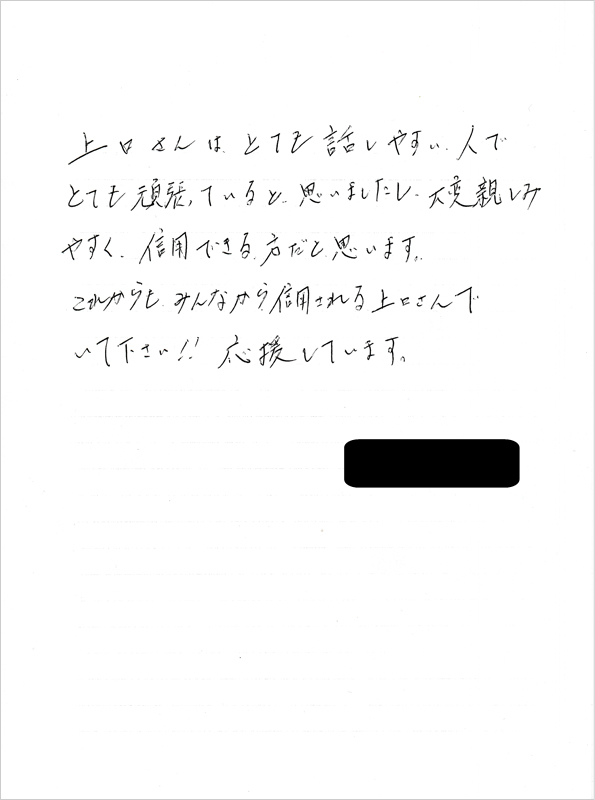 上口さんは、とても話しやすい、人で
とても頑張っていると、思いましたし、大変親しみ
やすく、信用できる方だと思います。
これからも、みんなから信用される上口さんで
いて下さい!! 応援しています。